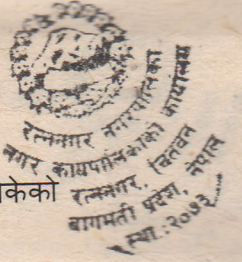 रत्ननगर नगरपालिका
नगर कार्यपालिकाको कार्यालय
रत्ननगर, चितवन
बागमती प्रदेश, नेपाल
स्था.:२०७३
केको